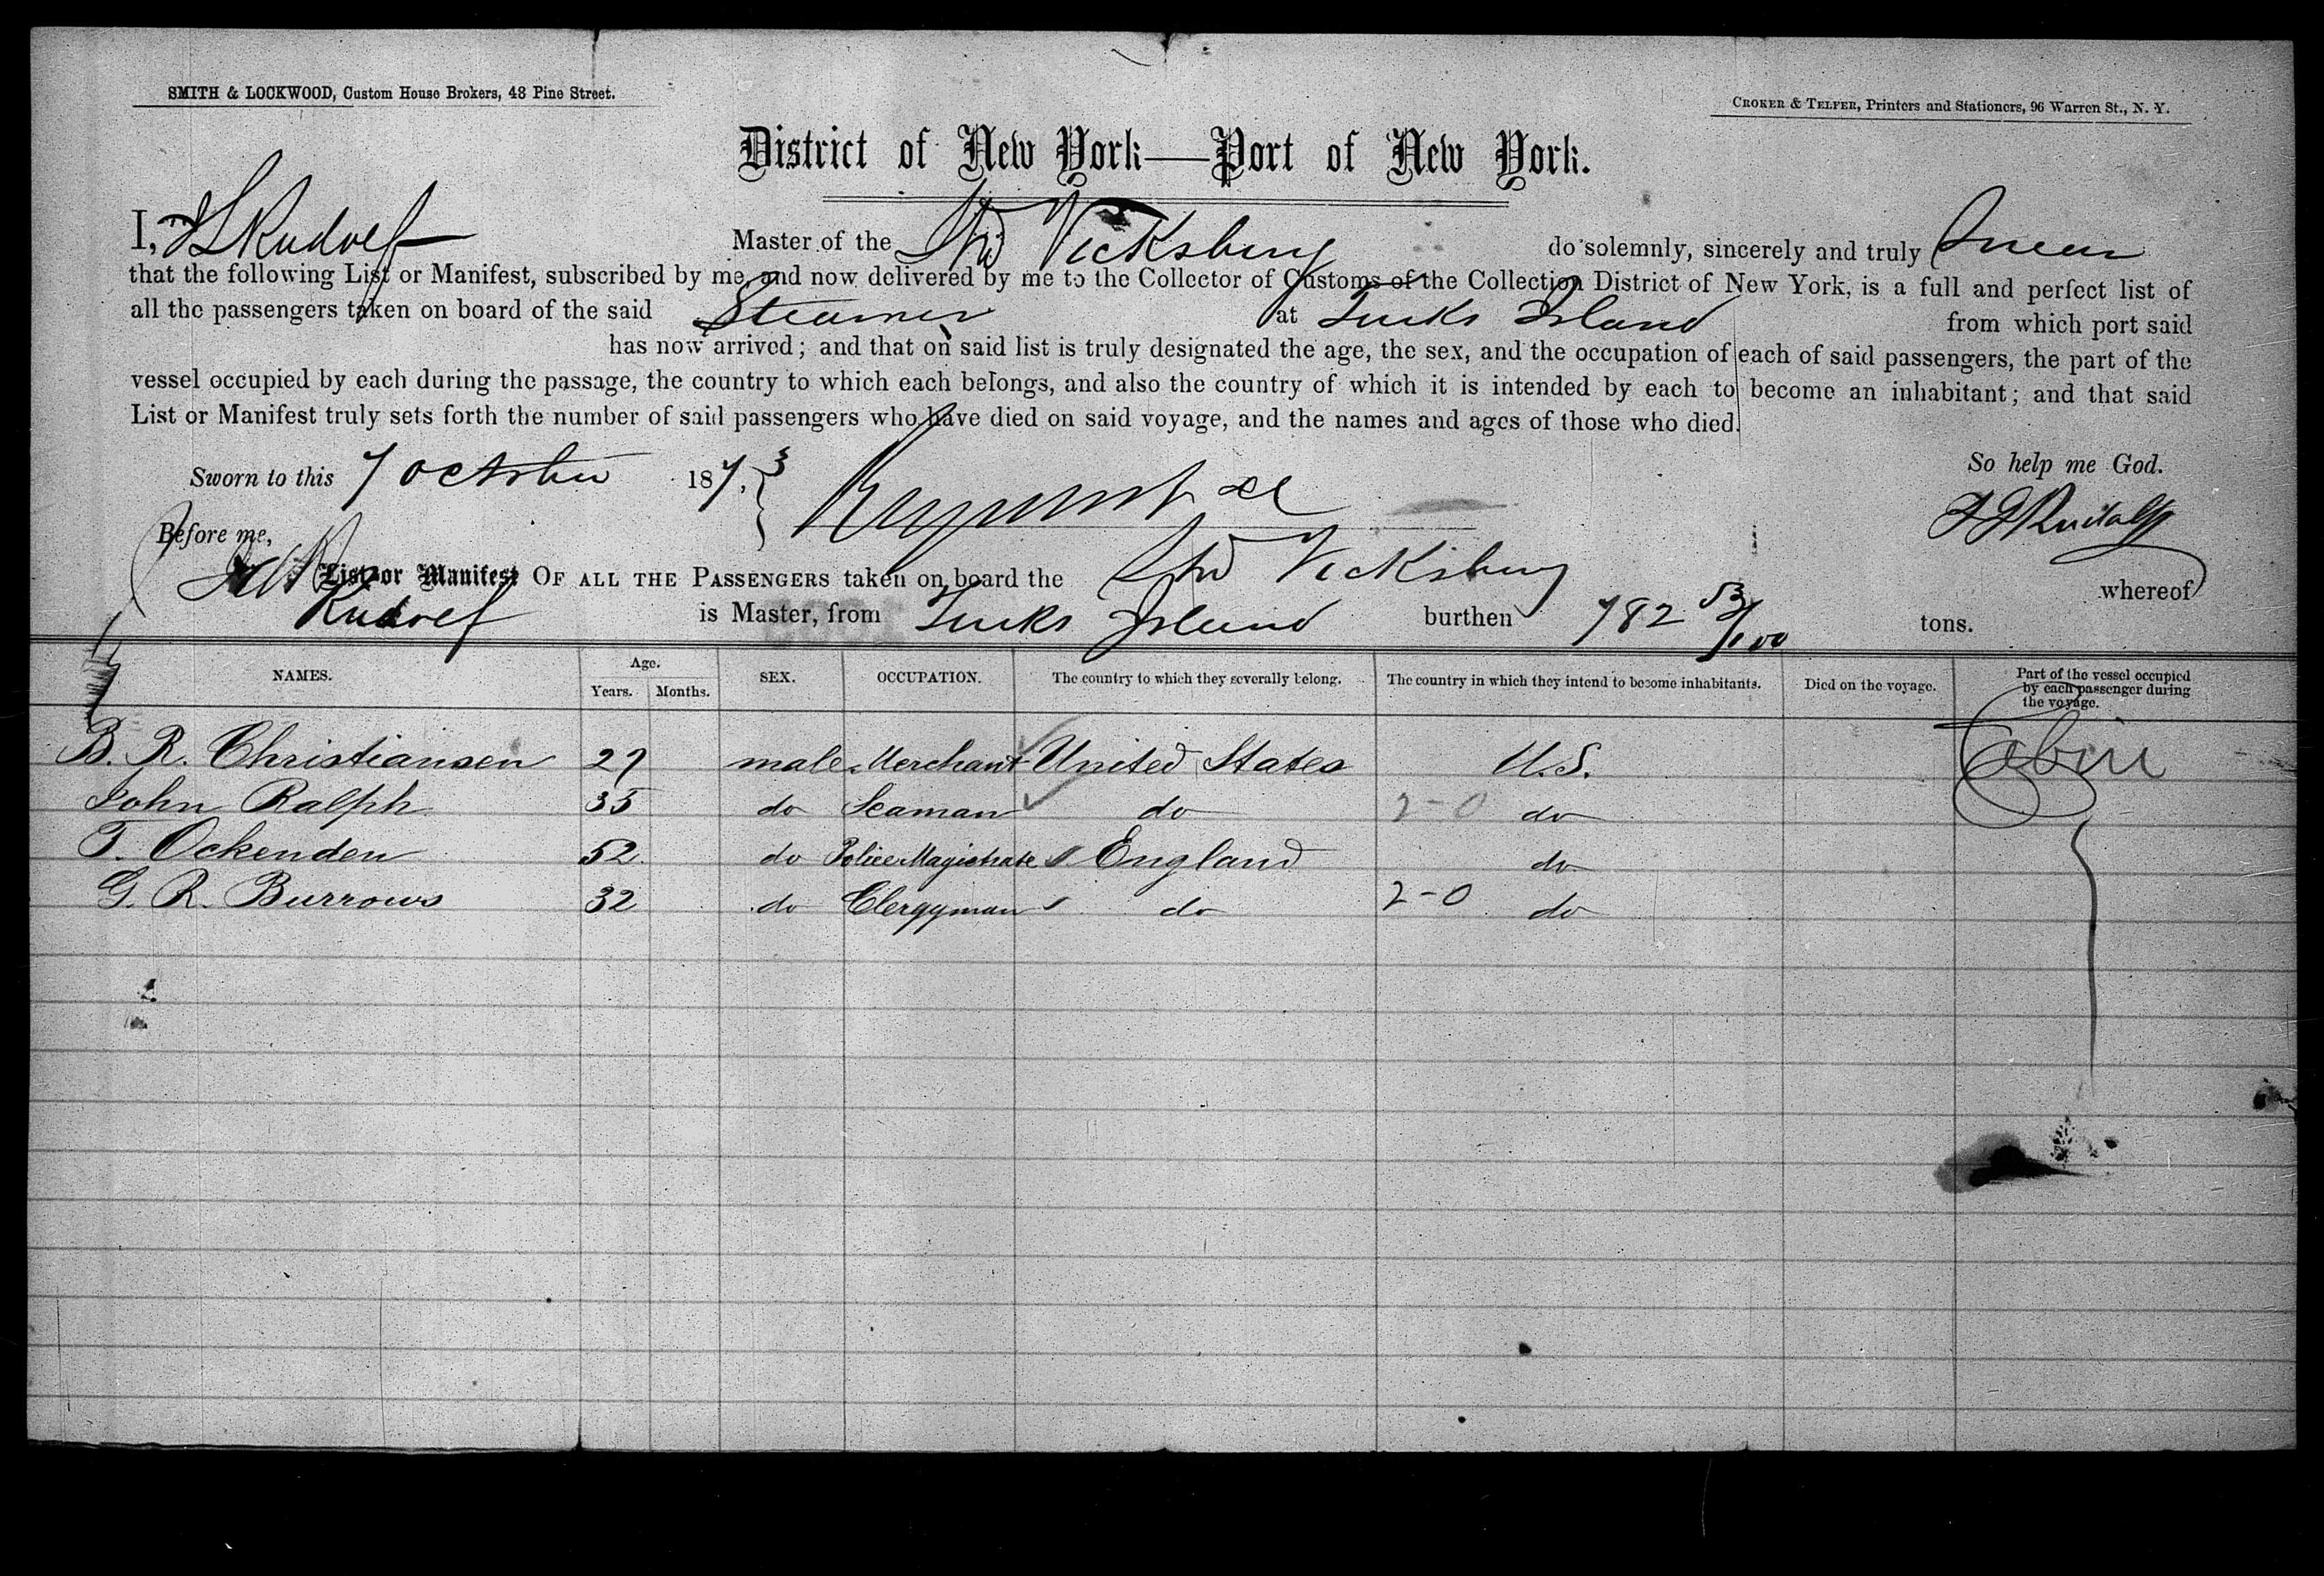 SMITH & LOCKWOOD, Custom House Brokers, 48 Pine Street.
CROKER & TELFER, Printers and Stationers, 96 Warren St., N. Y.
District of New York—Port of New York.
I, Rudolf Master of the Str Vicksburg do solemnly, sincerely and truly Swear
that the following List or Manifest, subscribed by me, and now delivered by me to the Collector of Customs of the Collection District of New York, is a full and perfect list of
all the passengers taken on board of the said Steamer at Turks Island from which port said
has now arrived; and that on said list is truly designated the age, the sex, and the occupation of each of said passengers, the part of the
vessel occupied by each during the passage, the country to which each belongs, and also the country of which it is intended by each to become an inhabitant; and that said
List or Manifest truly sets forth the number of said passengers who have died on said voyage, and the names and ages of those who died.
Sworn to this 7 October 1873 So help me God.
Before me, Rudolf
List or Manifest OF ALL THE PASSENGERS taken on board the Str Vicksburg whereof
Rudolf is Master, from Turks Island burthen 782 53/100 tons.
NAMES. Age. Years. Months. SEX. OCCUPATION. The country to which they severally belong. The country in which they intend to become inhabitants. Died on the voyage. Part of the vessel occupied by each passenger during the voyage.
B. R. Christiansen 27 male Merchant United States U.S. Cabin
John Ralph 35 do Seaman do 2-0 do
T. Ockenden 52 do Police Magistrate England do
G. R. Burrows 32 do Clergyman do 2-0 do